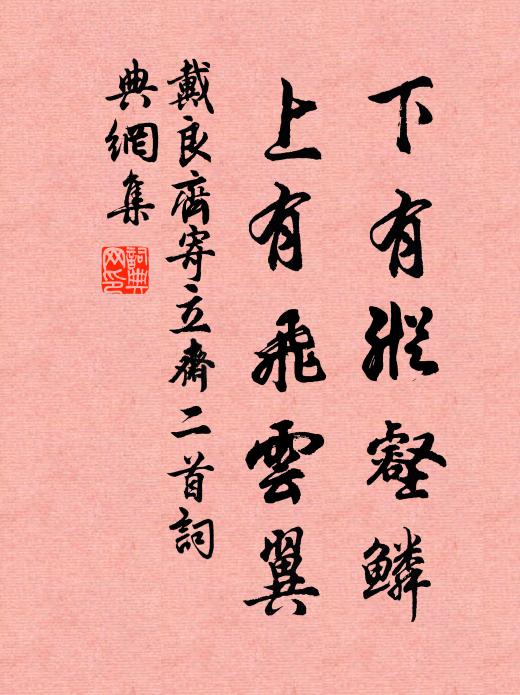 下有縱壑鱗
上有飛雲翼
戴良齊寄立齋二首詞
典網集
詞典網印